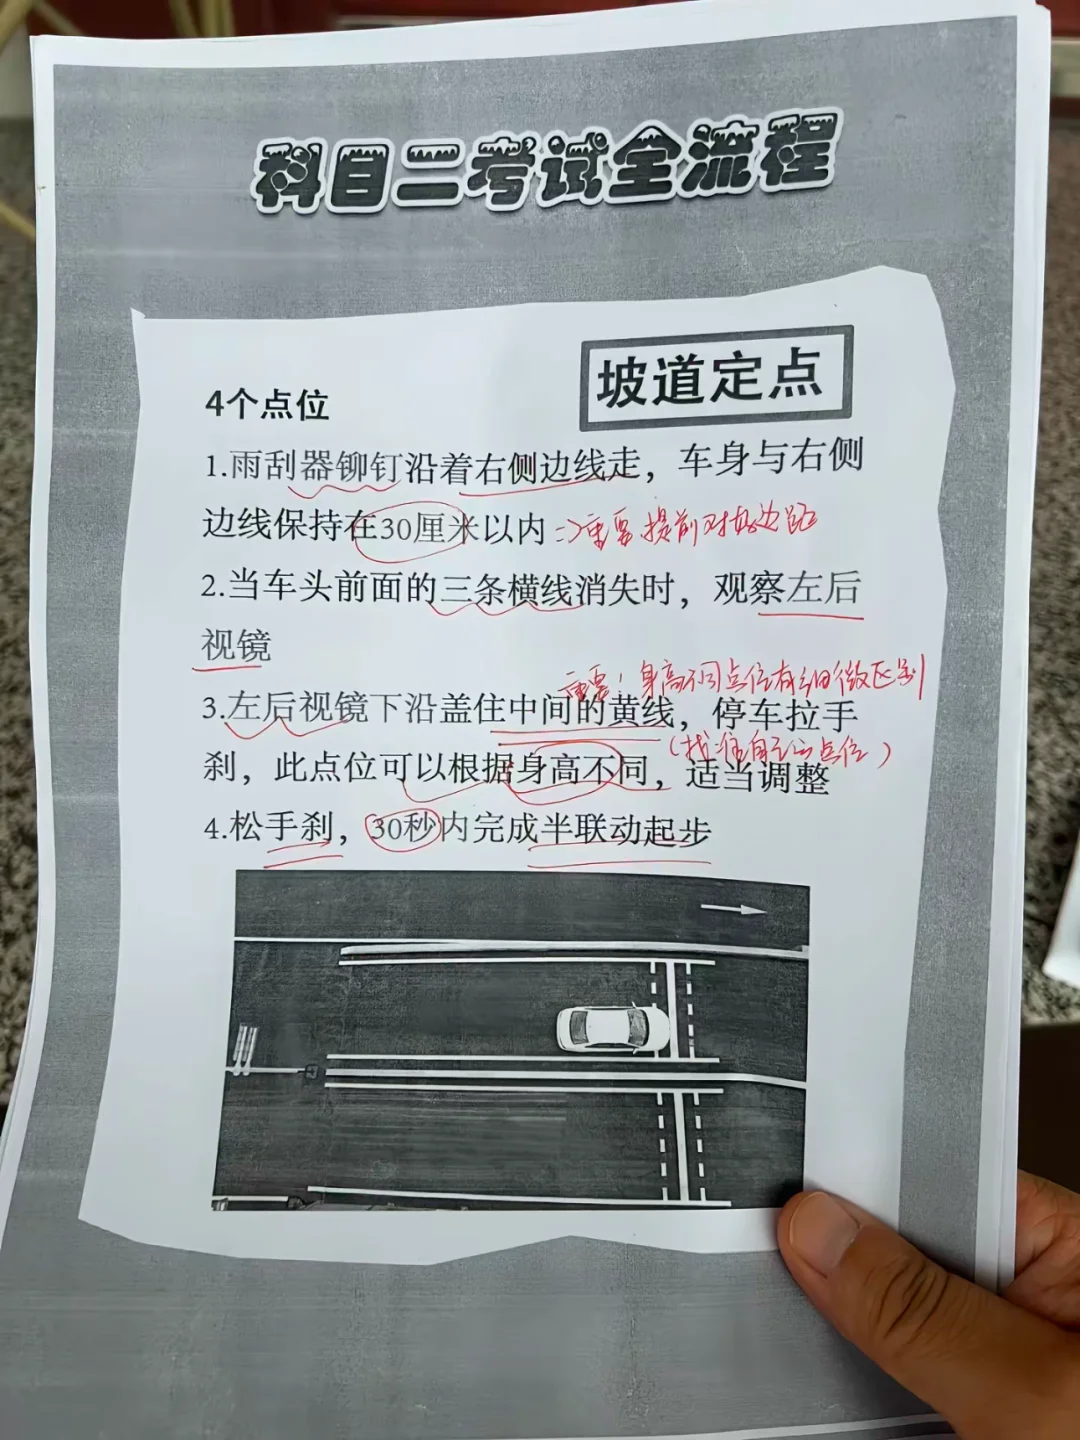 科目二考试全流程
坡道定点
4个点位
1.雨刮器铆钉沿着右侧边线走，车身与右侧
边线保持在30厘米以内 =>重要 提前对好边路
2.当车头前面的三条横线消失时，观察左后
视镜
重要！身高不同点位有细微区别
3.左后视镜下沿盖住中间的黄线，停车拉手
(找准自己的点位)
刹，此点位可以根据身高不同，适当调整
4.松手刹，30秒内完成半联动起步